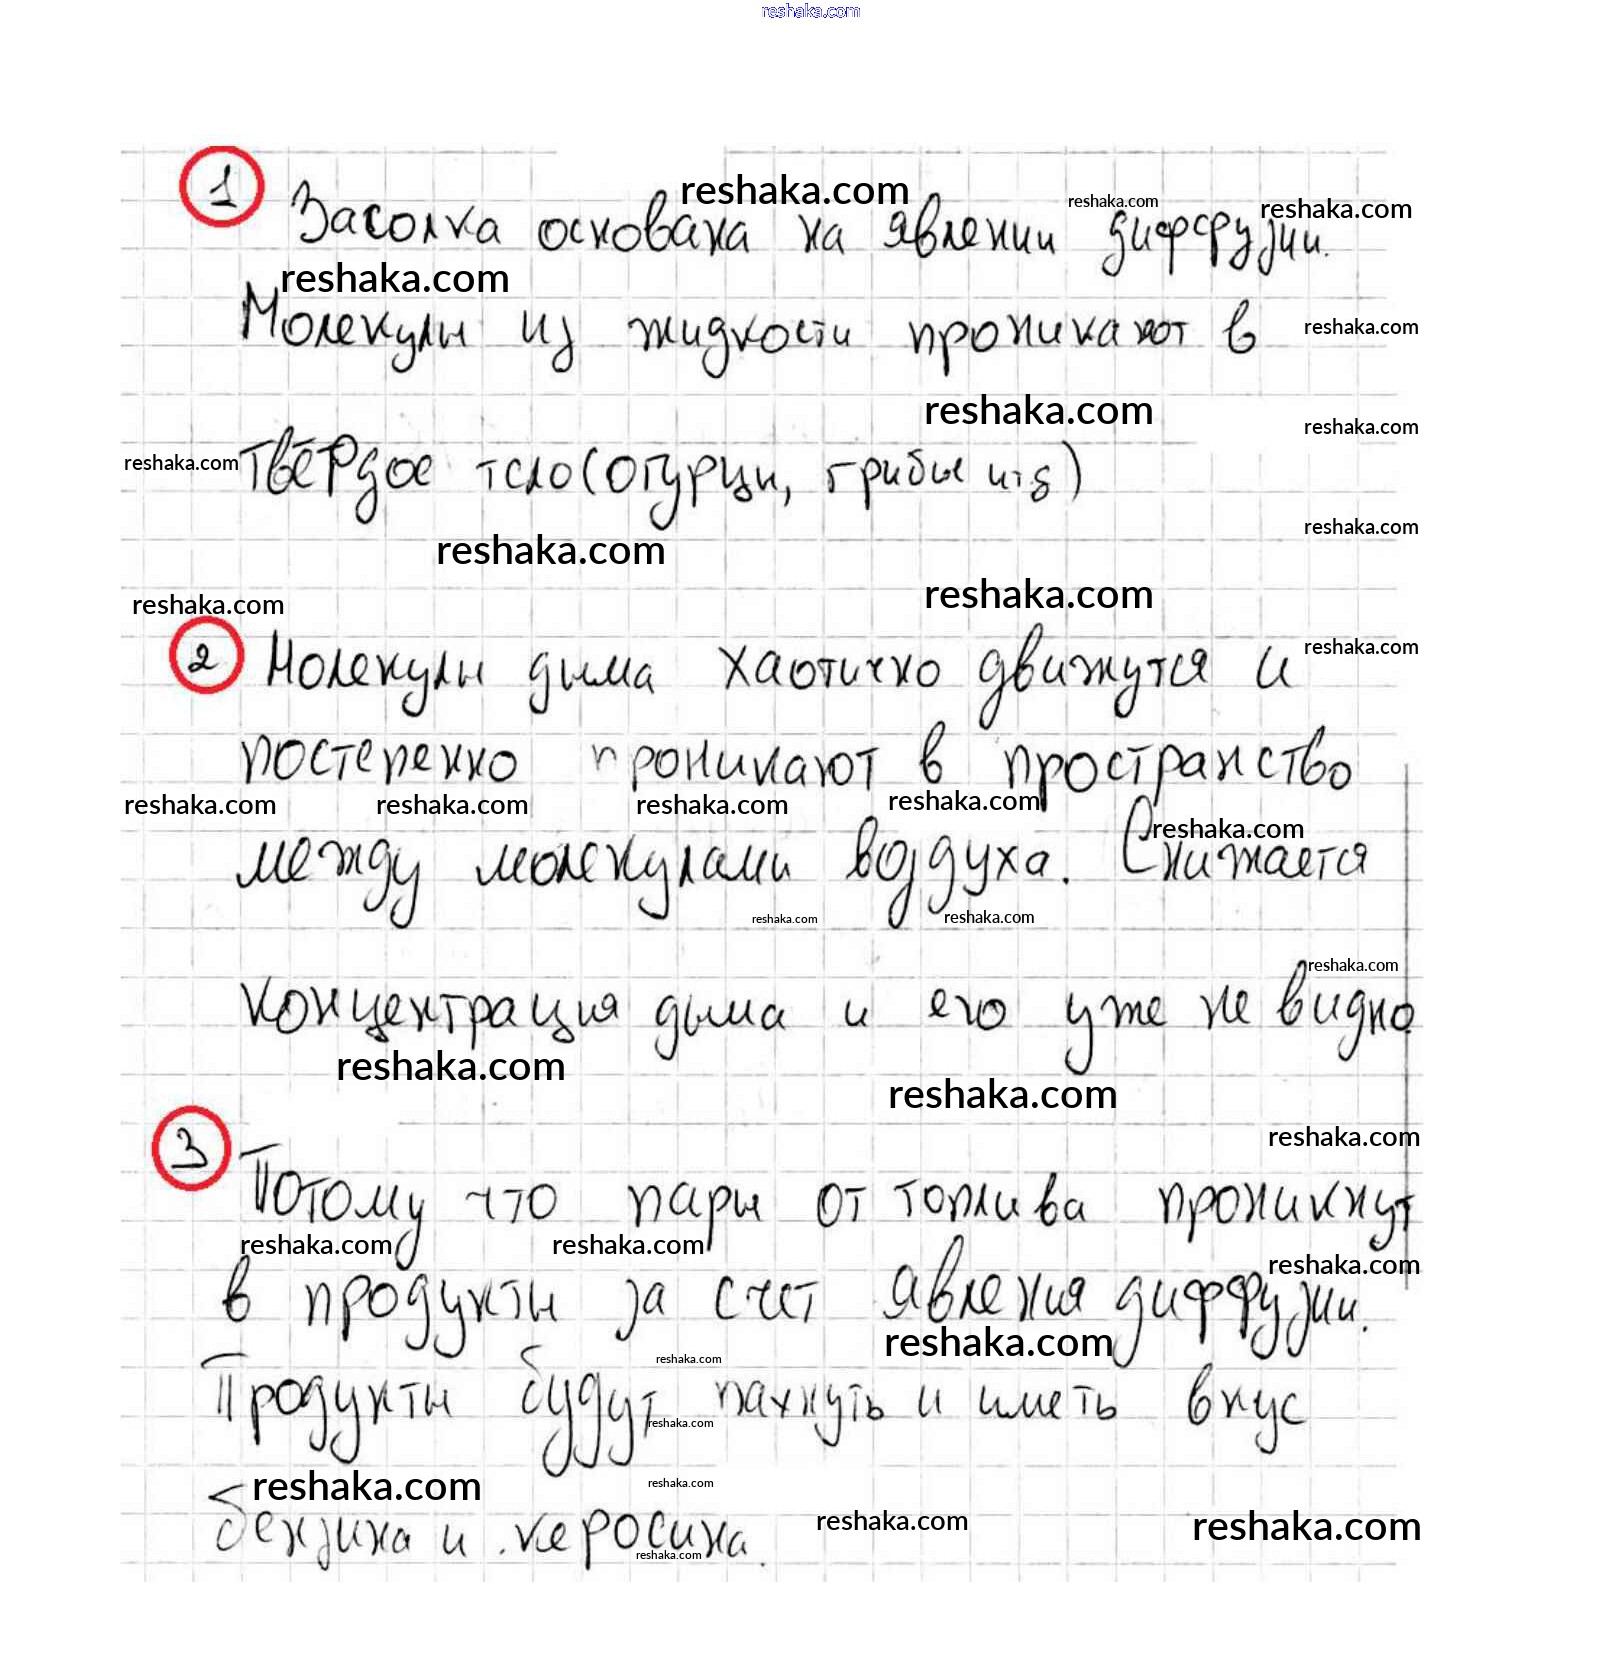 reshaka.com
1 Засолка основана на явлении диффузии.
reshaka.com reshaka.com reshaka.com
reshaka.com
Молекулы из жидкости проникают в
reshaka.com
reshaka.com reshaka.com
reshaka.com твёрдое тело (огурцы, грибы итд)
reshaka.com
reshaka.com
reshaka.com
reshaka.com
2 Молекулы дыма хаотично движутся и
reshaka.com
постепенно проникают в пространство
reshaka.com reshaka.com reshaka.com reshaka.com
reshaka.com
между молекулами воздуха. Снижается
reshaka.com reshaka.com
reshaka.com
концентрация дыма и его уже не видно
reshaka.com reshaka.com
reshaka.com
3 Потому что пары от топлива проникнут
reshaka.com reshaka.com reshaka.com
в продукты за счет явления диффузии.
reshaka.com
reshaka.com
Продукты будут пахнуть и иметь вкус
reshaka.com
reshaka.com reshaka.com
reshaka.com reshaka.com
бензина и керосина.
reshaka.com